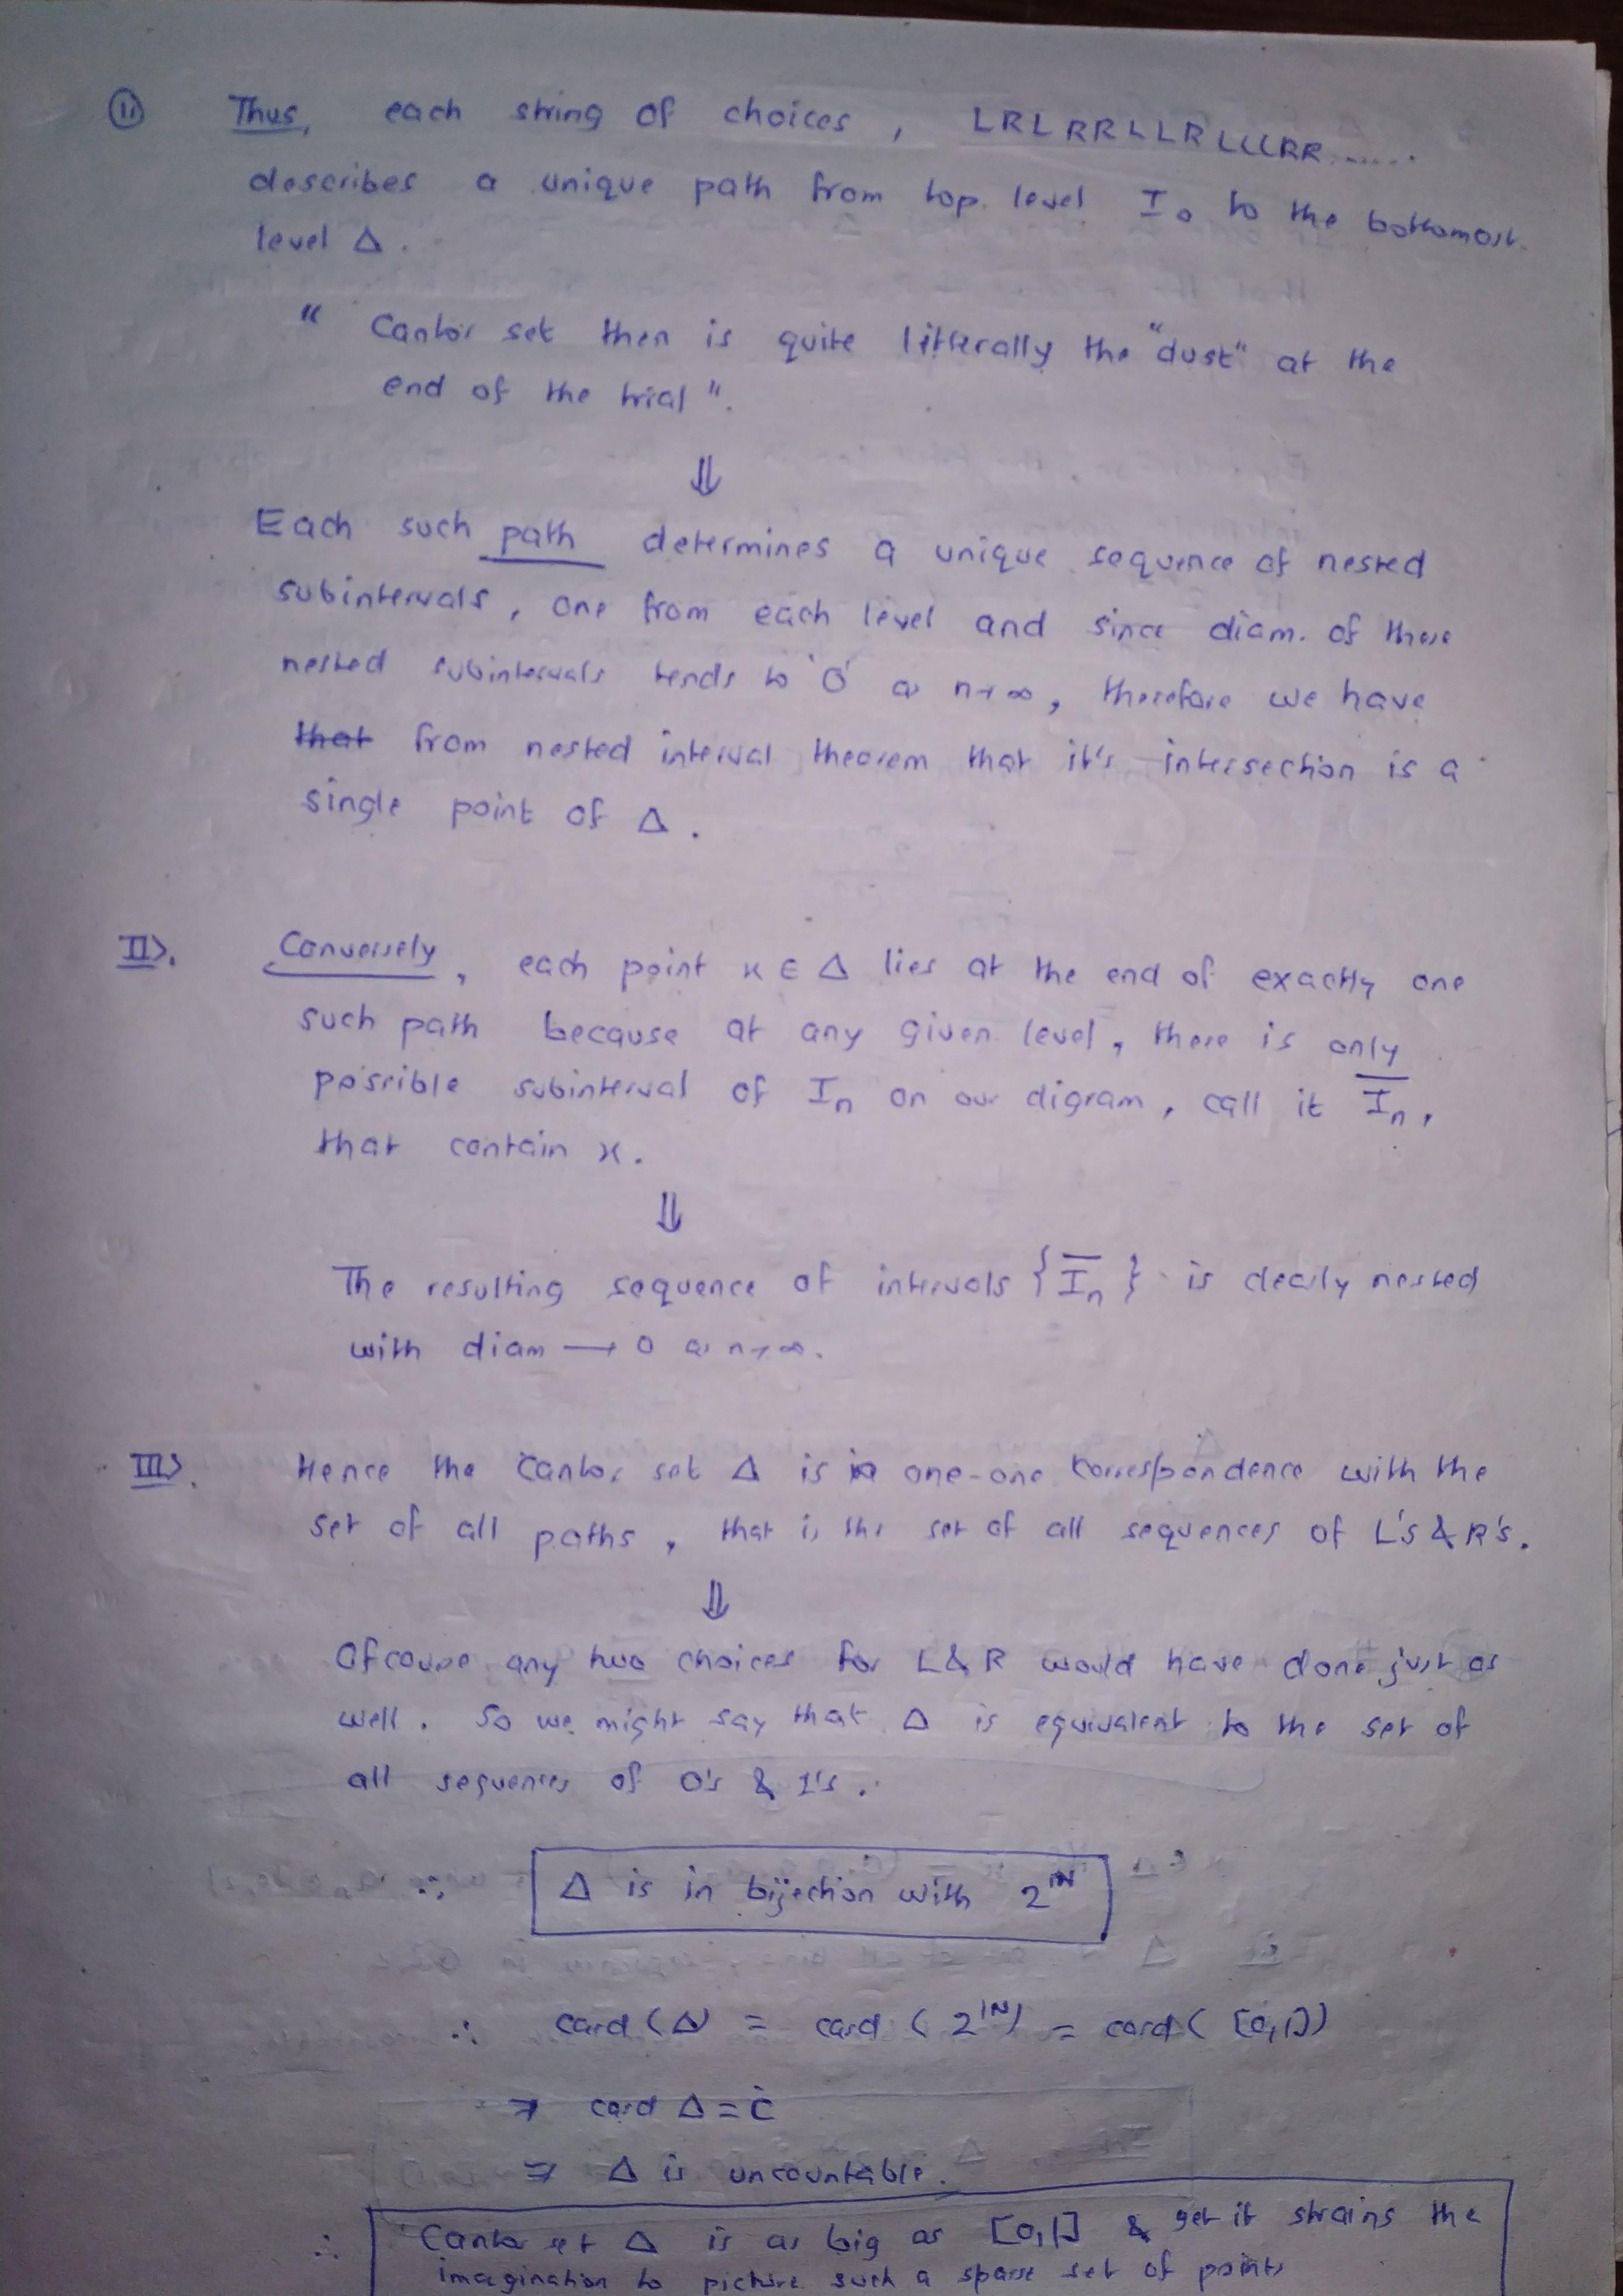 ⑪ Thus, each string of choices, LRLRRLLRLLLRR......
describes a unique path from top level I₀ to the bottomost
level Δ.
" Cantor set then is quite litterally the "dust" at the
end of the trial ".
⇓
Each such path determines a unique sequence of nested
subintervals, one from each level and since diam. of these
nested subintervals tends to '0' as n→∞, therefore we have
that from nested interval theorem that it's intersection is a
single point of Δ.
II>. Conversely, each point x ∈ Δ lies at the end of exactly one
such path because at any given level, there is only
possible subinterval of Iₙ on our digram, call it Īₙ,
that contain x.
⇓
The resulting sequence of intervals {Īₙ} is clearly nested
with diam → 0 as n→∞.
III>. Hence the Cantor set Δ is in one-one correspondence with the
set of all paths, that is the set of all sequences of L's & R's.
⇓
Ofcourse any two choices for L & R would have done just as
well. So we might say that Δ is equivalent to the set of
all sequences of 0's & 1's.
∴ Δ is in bijection with 2^ℕ
∴ card (Δ) = card (2^ℕ) = card ([0,1])
⇒ card Δ = c
⇒ Δ is uncountable.
∴ Cantor set Δ is as big as [0,1] & yet it strains the
imagination to picture such a sparse set of points